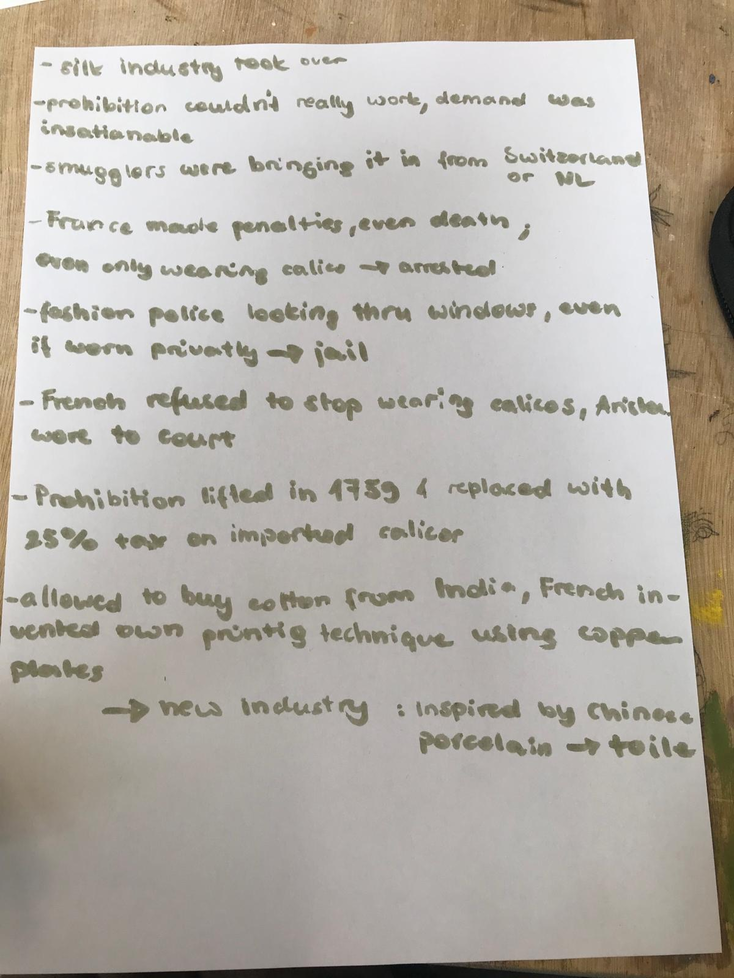 - silk industry took over
- prohibition couldn't really work, demand was
insatianable
- smugglers were bringing it in from Switzerland
or NL
- France made penalties, even death;
even only wearing calico → arrested
- fashion police looking thru windows, even
if worn privatly → jail
- French refused to stop wearing calicos,
wore to court
- Prohibition lifted in 1759 & replaced with
25% tax on imported calicos
- allowed to buy cotton from India, French in-
vented own printig technique using copper
plates
→ new industry : inspired by Chinese
porcelain → toile